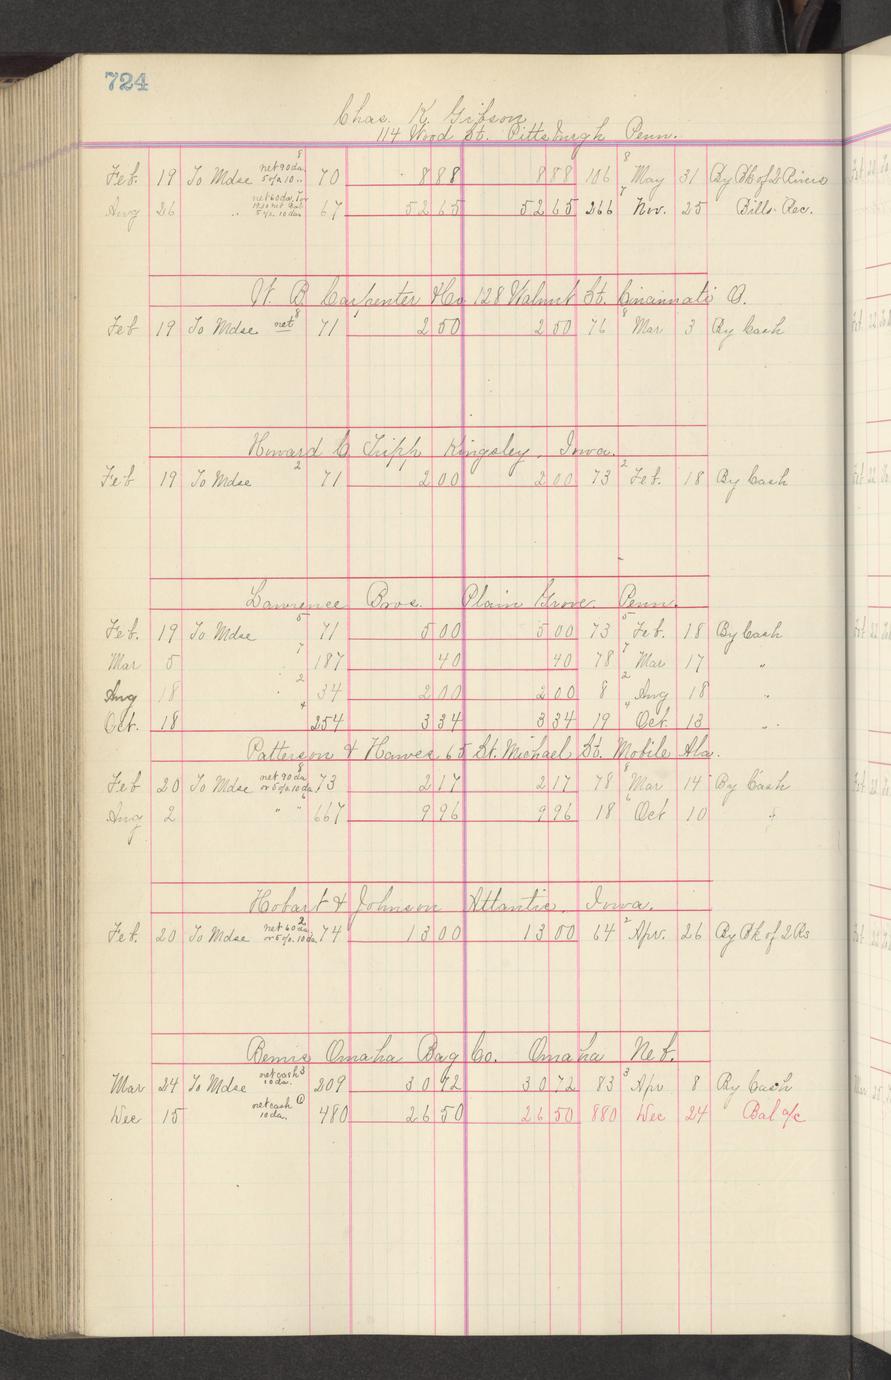 724
Chas. K. Gibson
114 Wood St. Pittsburgh Penn.
Feb. 19 To Mdse net 90 da 5% 10 " 8 70 8 88 8 88 106 8 May 31 By Bk of 2 Rivers
Aug 26 " net 60 da 5% 10 da. 67 52 65 52 65 266 7 Nov. 25 Bills Rec.
W. B. Carpenter & Co 128 Walnut St. Cincinnati O.
Feb 19 To Mdse net 8 71 2 50 2 50 76 8 Mar 3 By Cash
Howard C Tripp Kingsley, Iowa.
Feb 19 To Mdse 2 71 2 00 2 00 73 2 Feb. 18 By Cash
Lawrence Bros. Plain Grove. Penn.
Feb. 19 To Mdse 5 71 5 00 5 00 73 5 Feb. 18 By Cash
Mar 5 7 187 40 40 78 7 Mar 17 "
Aug 18 " 2 34 2 00 2 00 8 2 Aug 18 "
Oct. 18 4 254 3 34 3 34 19 4 Oct. 13 "
Patterson & Hawes 65 St. Michael St. Mobile Ala.
Feb 20 To Mdse net 90 da or 5% 10 da. 8 73 2 17 2 17 78 8 Mar 14 By Cash
Aug 2 " " 6 667 9 96 9 96 18 6 Oct 10 "
Hobart & Johnson Atlantic, Iowa.
Feb. 20 To Mdse net 60 da or 5% 10 da. 2 74 13 00 13 00 64 2 Apr. 26 By Bk of 2 Rs
Bemis Omaha Bag Co. Omaha Neb.
Mar 24 To Mdse net cash 10 da. 3 209 30 72 30 72 83 3 Apr 8 By Cash
Dec 15 net cash 10 da. 1 480 26 50 26 50 880 Dec 24 Bal a/c